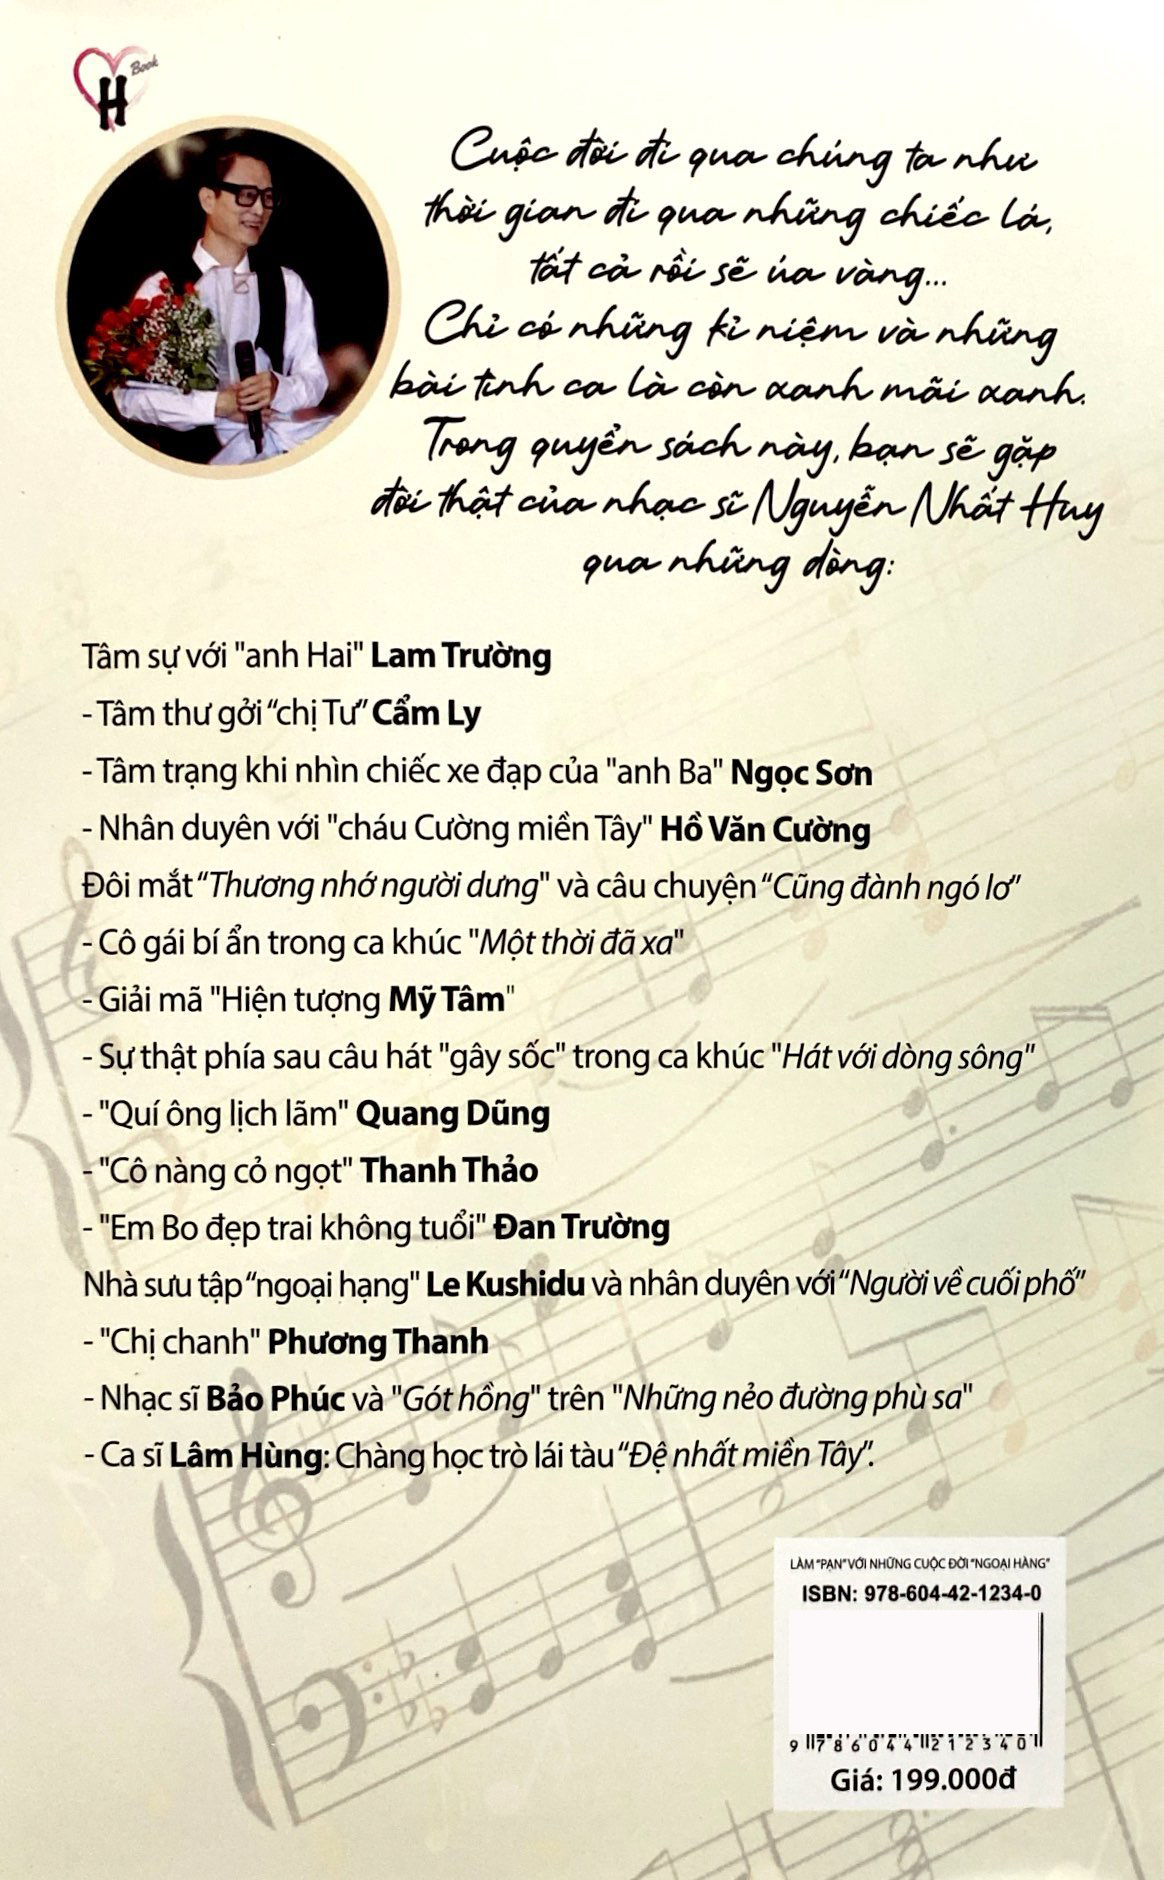 H Book
Cuộc đời đi qua chúng ta như
thời gian đi qua những chiếc lá,
tất cả rồi sẽ úa vàng...
Chỉ có những kỉ niệm và những
bài tình ca là còn xanh mãi xanh.
Trong quyển sách này, bạn sẽ gặp
đời thật của nhạc sĩ Nguyễn Nhất Huy
qua những dòng:
Tâm sự với "anh Hai" Lam Trường
- Tâm thư gởi “chị Tư” Cẩm Ly
- Tâm trạng khi nhìn chiếc xe đạp của "anh Ba" Ngọc Sơn
- Nhân duyên với "cháu Cường miền Tây" Hồ Văn Cường
Đôi mắt “Thương nhớ người dưng" và câu chuyện “Cũng đành ngó lơ”
- Cô gái bí ẩn trong ca khúc "Một thời đã xa"
- Giải mã "Hiện tượng Mỹ Tâm"
- Sự thật phía sau câu hát "gây sốc" trong ca khúc "Hát với dòng sông"
- "Quí ông lịch lãm" Quang Dũng
- "Cô nàng cỏ ngọt" Thanh Thảo
- "Em Bo đẹp trai không tuổi" Đan Trường
Nhà sưu tập “ngoại hạng" Le Kushidu và nhân duyên với “Người về cuối phố”
- "Chị chanh" Phương Thanh
- Nhạc sĩ Bảo Phúc và "Gót hồng" trên "Những nẻo đường phù sa"
- Ca sĩ Lâm Hùng: Chàng học trò lái tàu “Đệ nhất miền Tây”.
LÀM “PẠN” VỚI NHỮNG CUỘC ĐỜI “NGOẠI HÀNG”
ISBN: 978-604-42-1234-0
9 786044 212340
Giá: 199.000đ